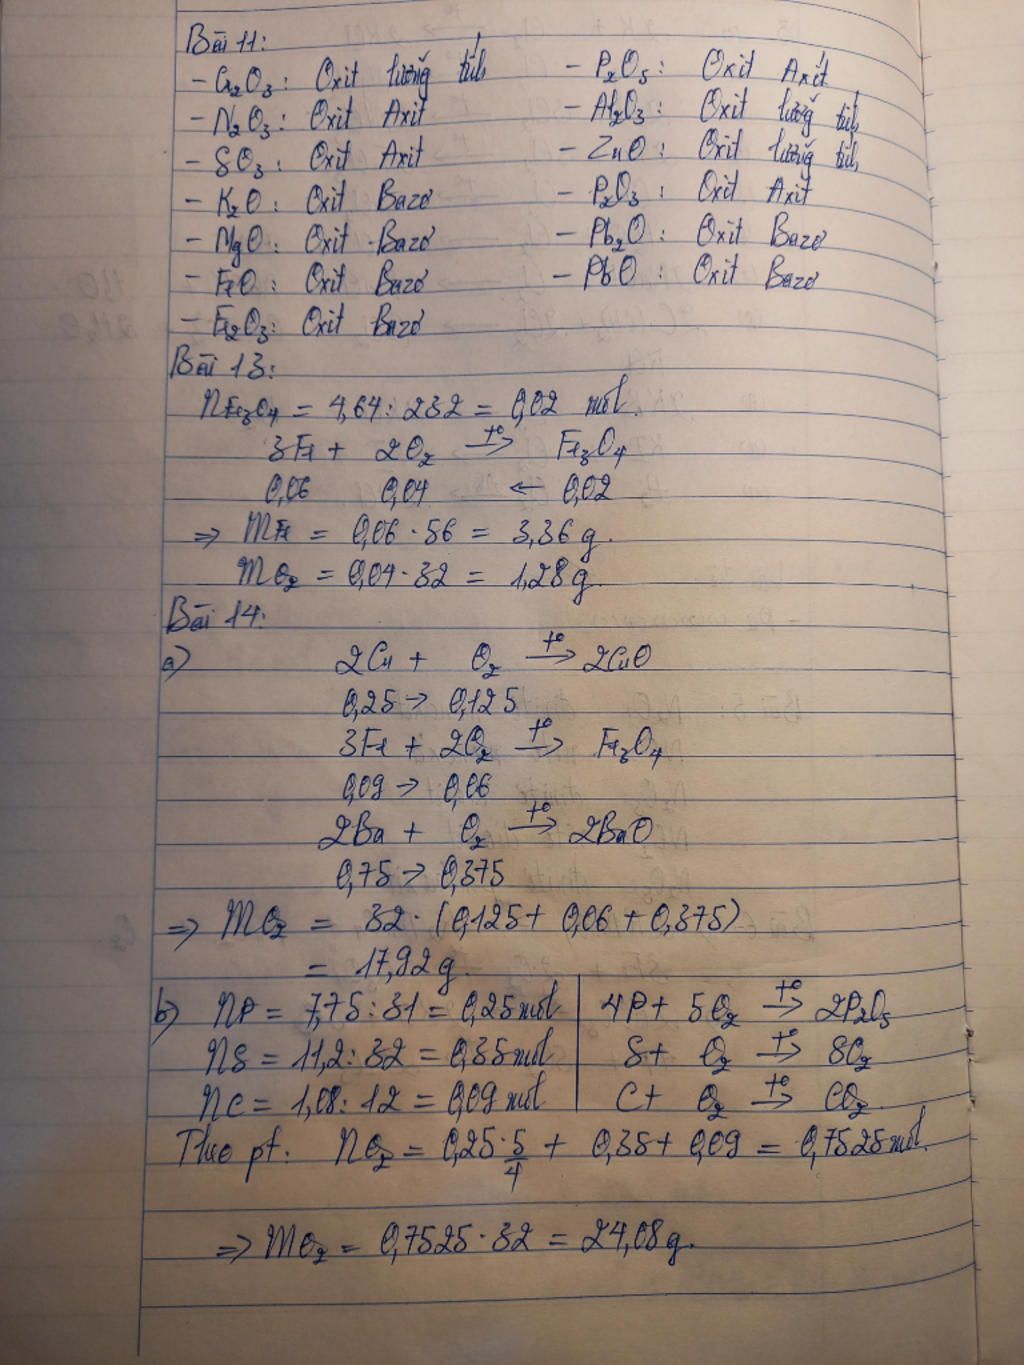 Bài 11:
- Cr2O3: Oxit lưỡng tính - P2O5: Oxit Axit
- N2O3: Oxit Axit - Al2O3: Oxit lưỡng tính
- SO3: Oxit Axit - ZnO: Oxit lưỡng tính
- K2O: Oxit Bazơ - P2O3: Oxit Axit
- MgO: Oxit Bazơ - Pb2O: Oxit Bazơ
- FeO: Oxit Bazơ - PbO: Oxit Bazơ
- Fe2O3: Oxit Bazơ
Bài 13:
nFe3O4 = 4,64 : 232 = 0,02 mol.
3Fe + 2O2 t°→ Fe3O4
0,06 0,04 ← 0,02
⇒ mFe = 0,06 · 56 = 3,36 g.
mO2 = 0,04 · 32 = 1,28 g.
Bài 14:
a) 2Cu + O2 t°→ 2CuO
0,25 → 0,125
3Fe + 2O2 t°→ Fe3O4
0,09 → 0,06
2Ba + O2 t°→ 2BaO
0,75 → 0,375
⇒ mO2 = 32 · (0,125 + 0,06 + 0,375)
= 17,92 g.
b) nP = 7,75 : 31 = 0,25 mol | 4P + 5O2 t°→ 2P2O5
nS = 11,2 : 32 = 0,35 mol | S + O2 t°→ SO2
nC = 1,08 : 12 = 0,09 mol | C + O2 t°→ CO2.
Theo pt: nO2 = 0,25 · 5/4 + 0,35 + 0,09 = 0,7525 mol.
⇒ mO2 = 0,7525 · 32 = 24,08 g.